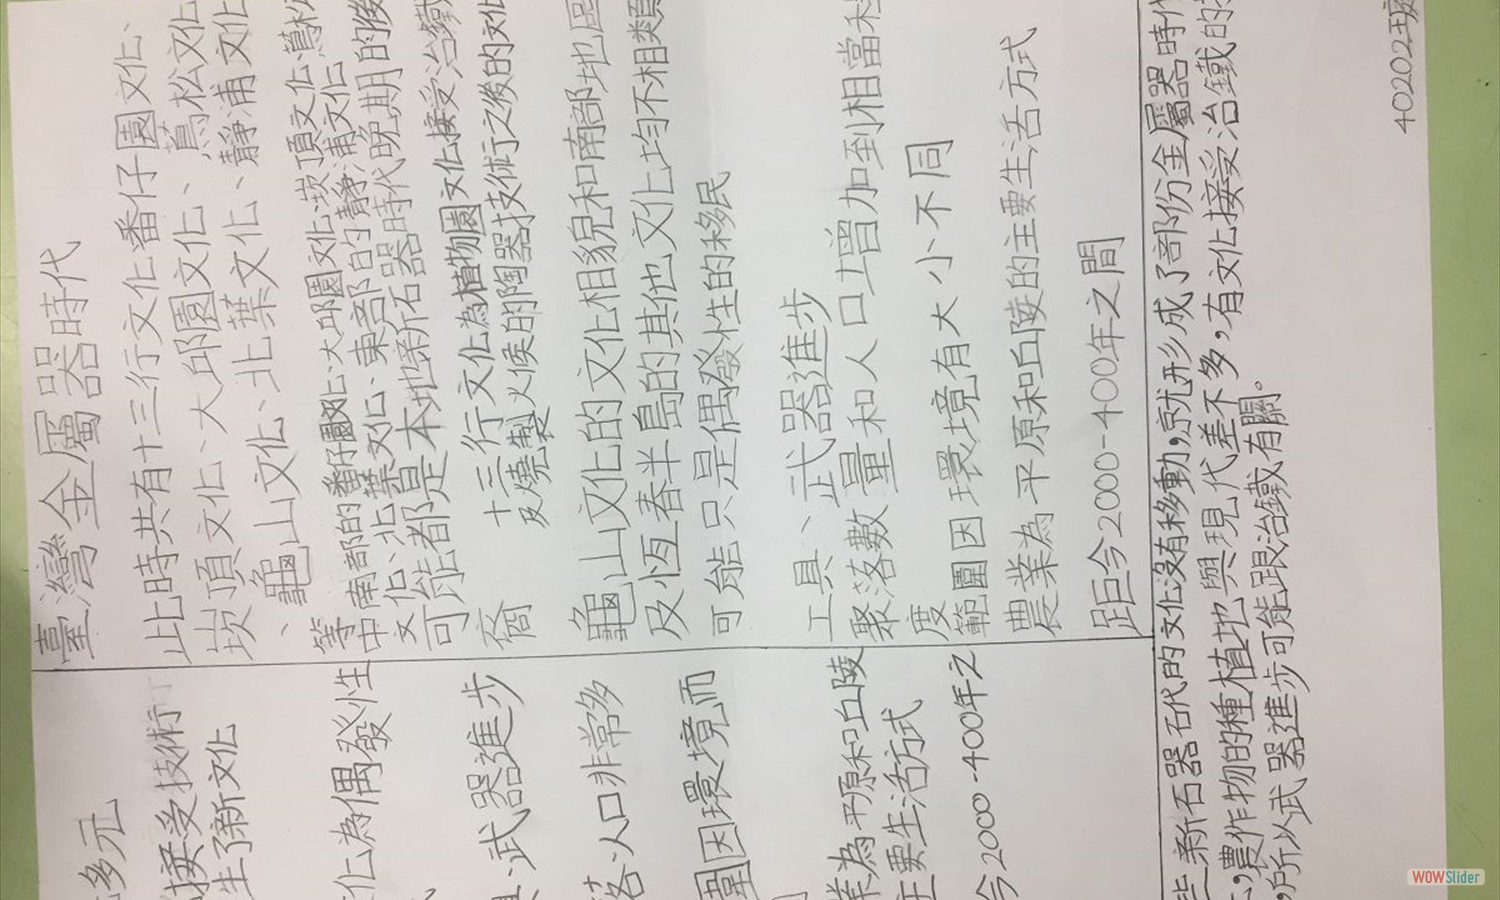 多元
接受技術
生了新文化
化為偶發性
、武器進步
落、人口非常多
圍因環境而
業為平原和丘陵
主要生活方式
今2000-400年之
臺灣金屬器時代
此時共有十三行文化、番仔園文化、
崁頂文化、大邱園文化、蔦松文化
、龜山文化、北葉文化、靜浦文化
等
中南部的番仔園文化、大邱園文化、崁頂文化、蔦松
文化、北葉文化、東部的靜浦文化
可能都是本地新石器時代晚期的後
裔
十三行文化為植物園文化接受治鐵
及燒製火候的陶器技術行之後的文
龜山文化的文化相貌和南部地區
及恆春半島的其他文化均不相類
可能只是偶發性的移民
工具、武器進步
聚落數量和人口增加到相當程
度
範圍因環境有大小不同
農業為平原和丘陵的主要生活方式
距今2000-400年之間
些新石器石代的文化沒有移動,就形成了部份金屬器時
,農作物的種植地與現代差不多,有文化接受治鐵的
,所以武器進步可能跟治鐵有關。
40202
WOWSlider